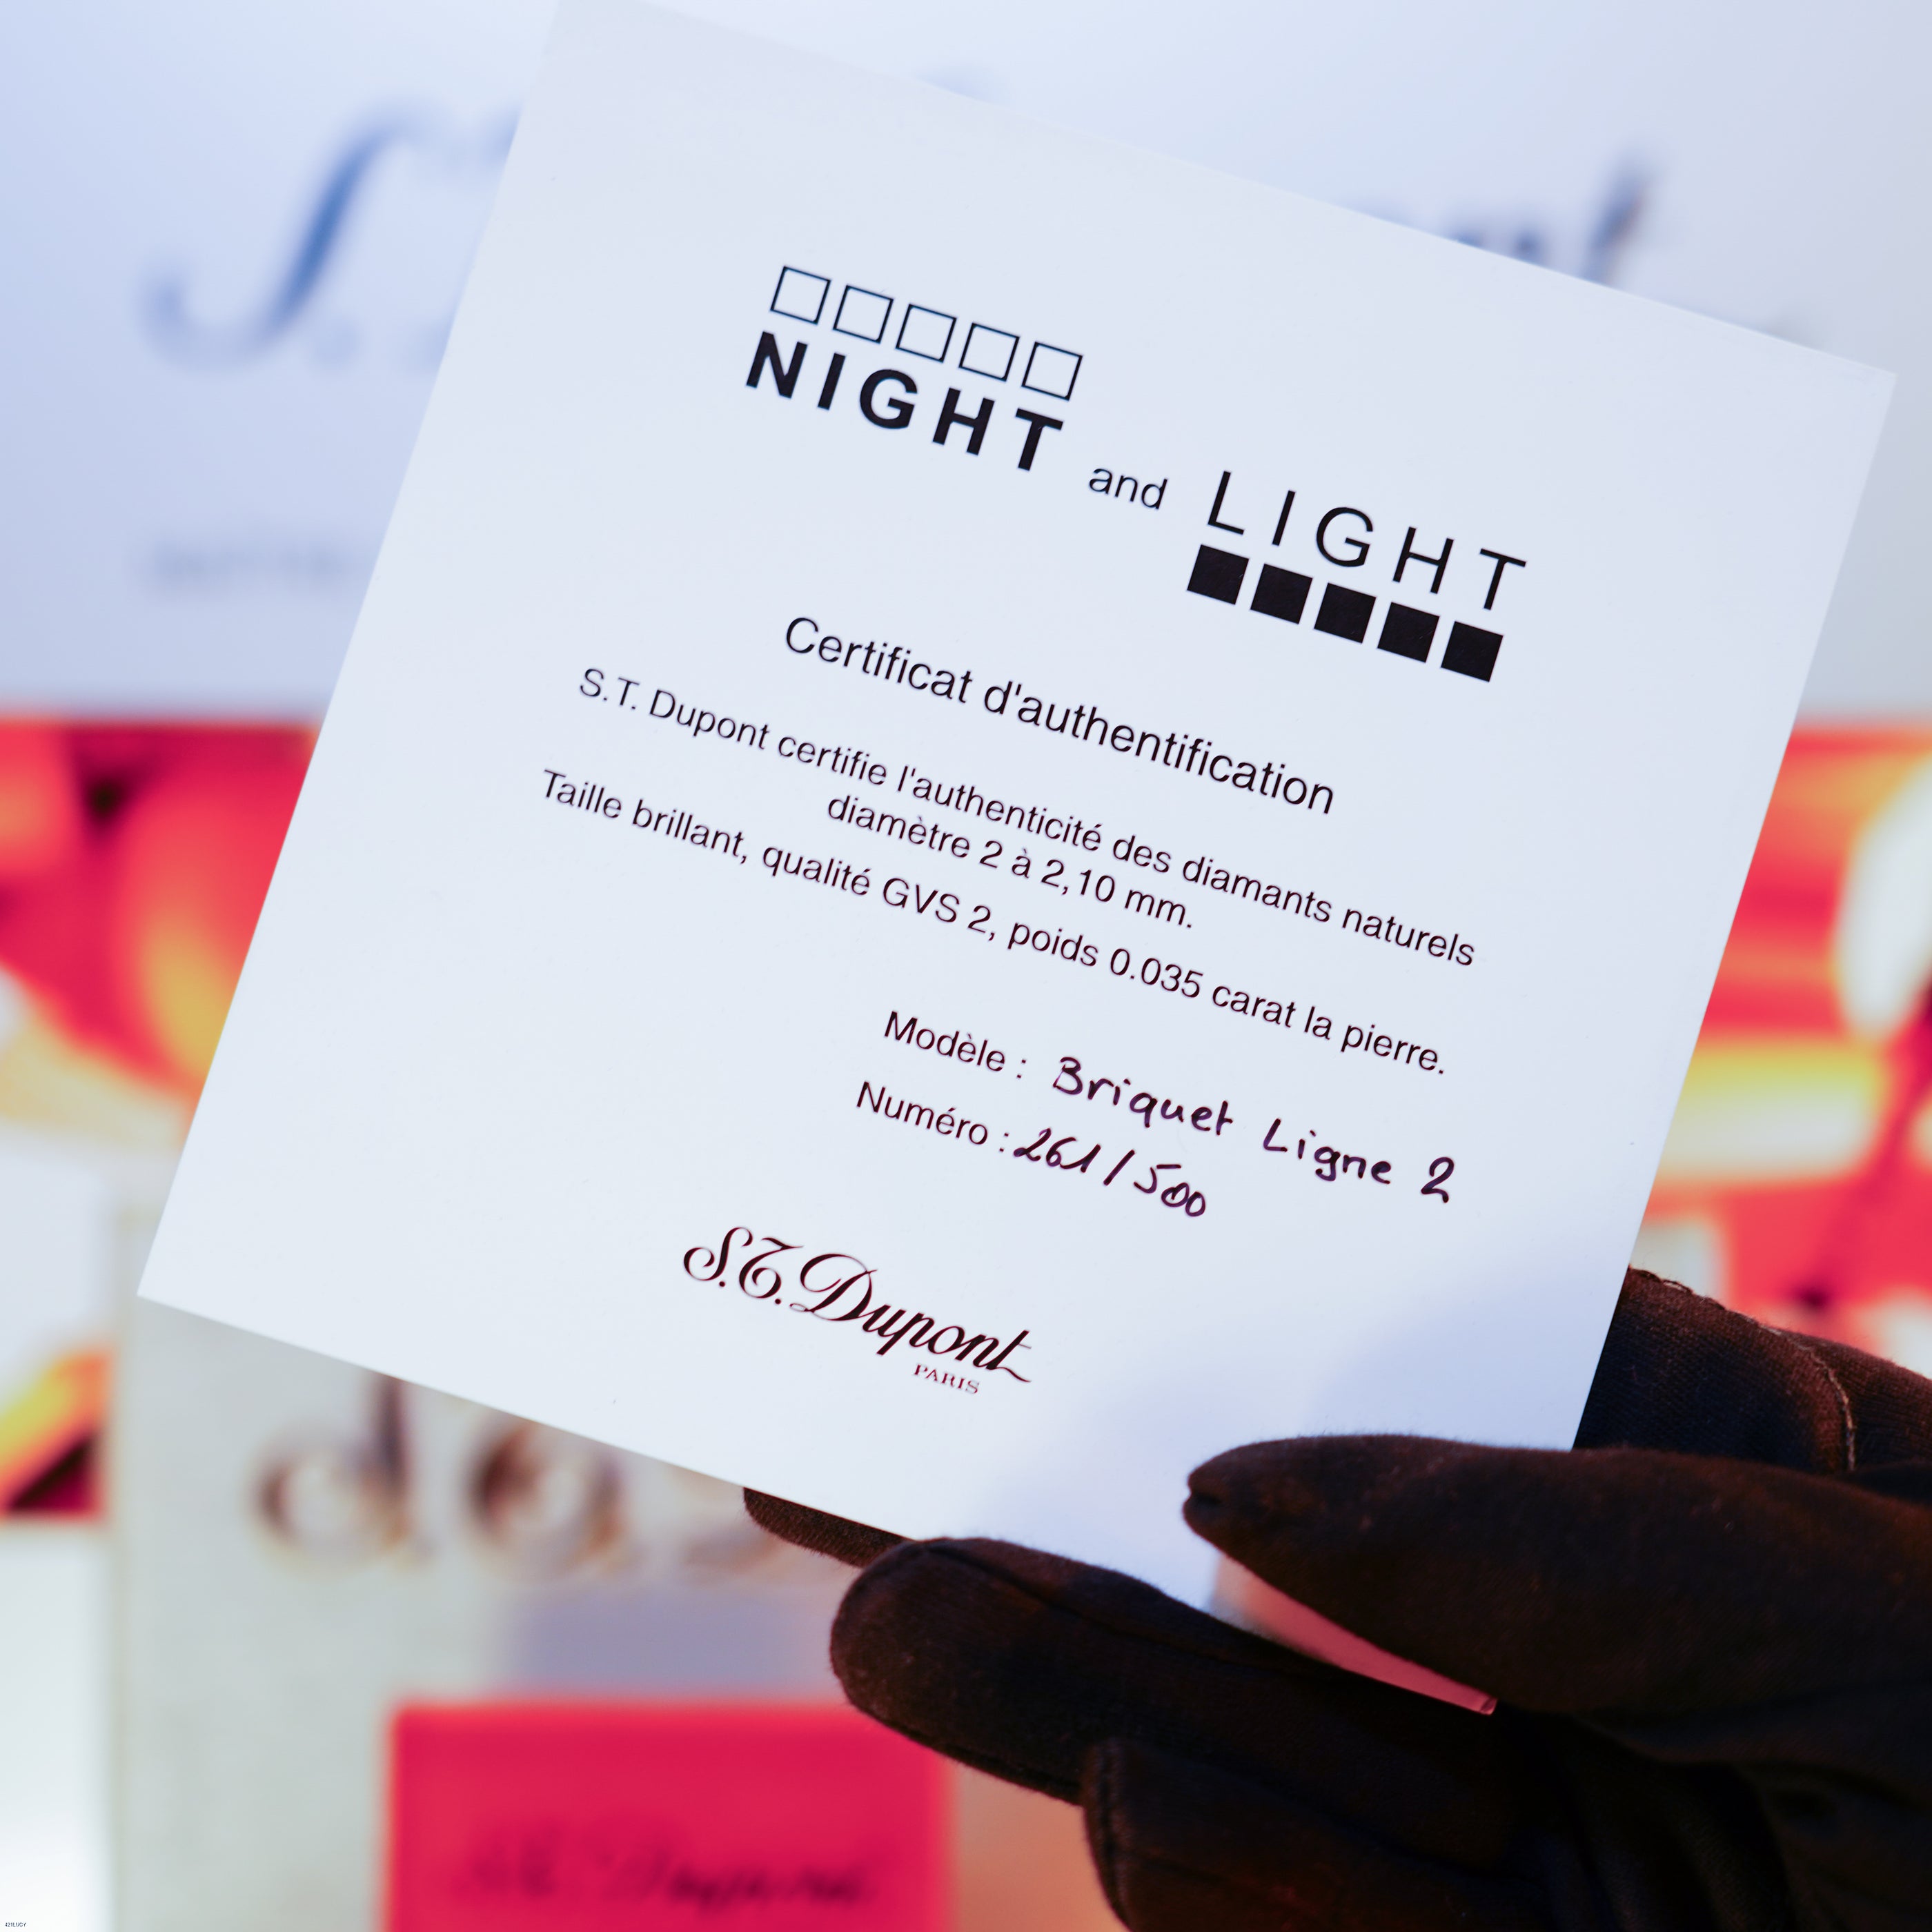 NIGHT and LIGHT
Certificat d'authentification
S.T. Dupont certifie l'authenticité des diamants naturels
diamètre 2 à 2,10 mm.
Taille brillant, qualité GVS 2, poids 0.035 carat la pierre.
Modèle : Briquet Ligne 2
Numéro : 261/500
S.T. Dupont
PARIS
S.T. Dupont